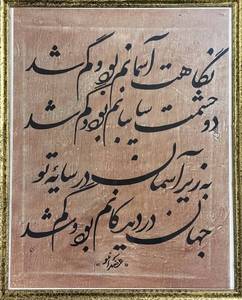 نگاهت آسمانم بود و گم شد
دو چشمت سایبانم بود و گم شد
به زیر آسمان در سایهٔ تو
جهان در دیدگانم بود و گم شد